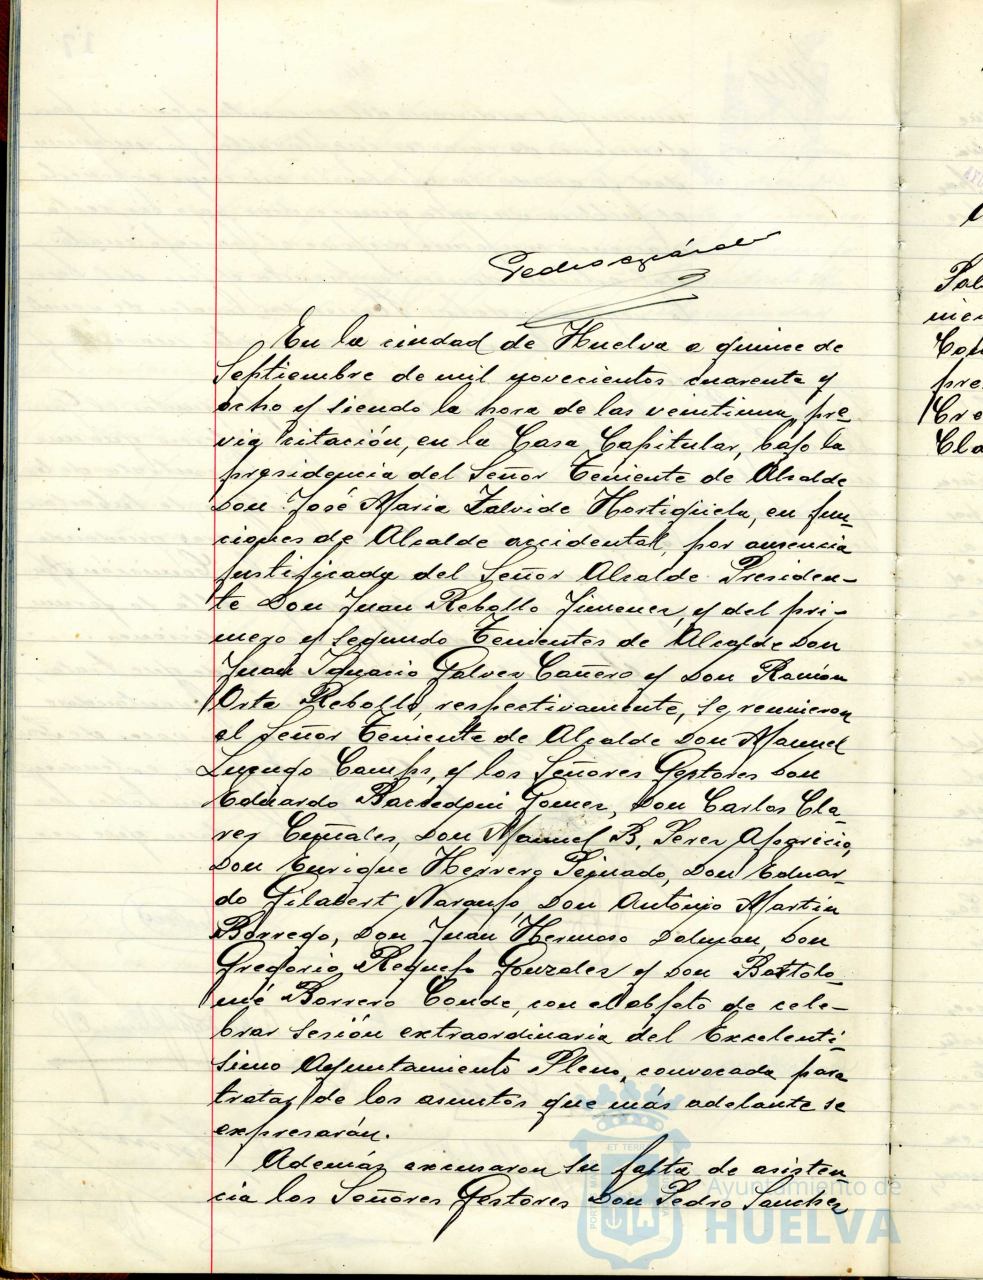 En la ciudad de Huelva a quince de
Septiembre de mil novecientos cuarenta y
ocho y siendo la hora de las veintiuna, pre-
via citación, en la Casa Capitular, bajo la
presidencia del Señor Teniente de Alcalde
Don José Maria Zalvide Hortigüela, en fun-
ciones de Alcalde accidental, por ausencia
justificada del Señor Alcalde Presiden-
te Don Juan Rebollo Jimenez, y del pri-
mero y segundo Tenientes de Alcalde Don
Juan Ignacio Galvez Cañero y Don Ramón
Orta Rebollo, respectivamente, se reunieron
el Señor Teniente de Alcalde Don Manuel
Luengo Camps, y los Señores Gestores Don
Eduardo Gomez, Don Carlos Cla-
rez Don Manuel B. Perez Aparicio,
Don Enrique Herrero Peinado, Don Eduar-
do Gilabert Naranjo, Don Antonio Martin
Borrego, Don Juan Hermoso Don
Gregorio Requejo Gonzalez y Don Bartolo-
mé Borrero Conde, con el objeto de cele-
brar sesión extraordinaria del Excelentí-
simo Ayuntamiento Pleno, convocada para
tratar de los asuntos que más adelante se
expresarán.
Además excusaron su falta de asisten-
cia los Señores Gestores Don Pedro Sanchez
Ayuntamiento de
HUELVA